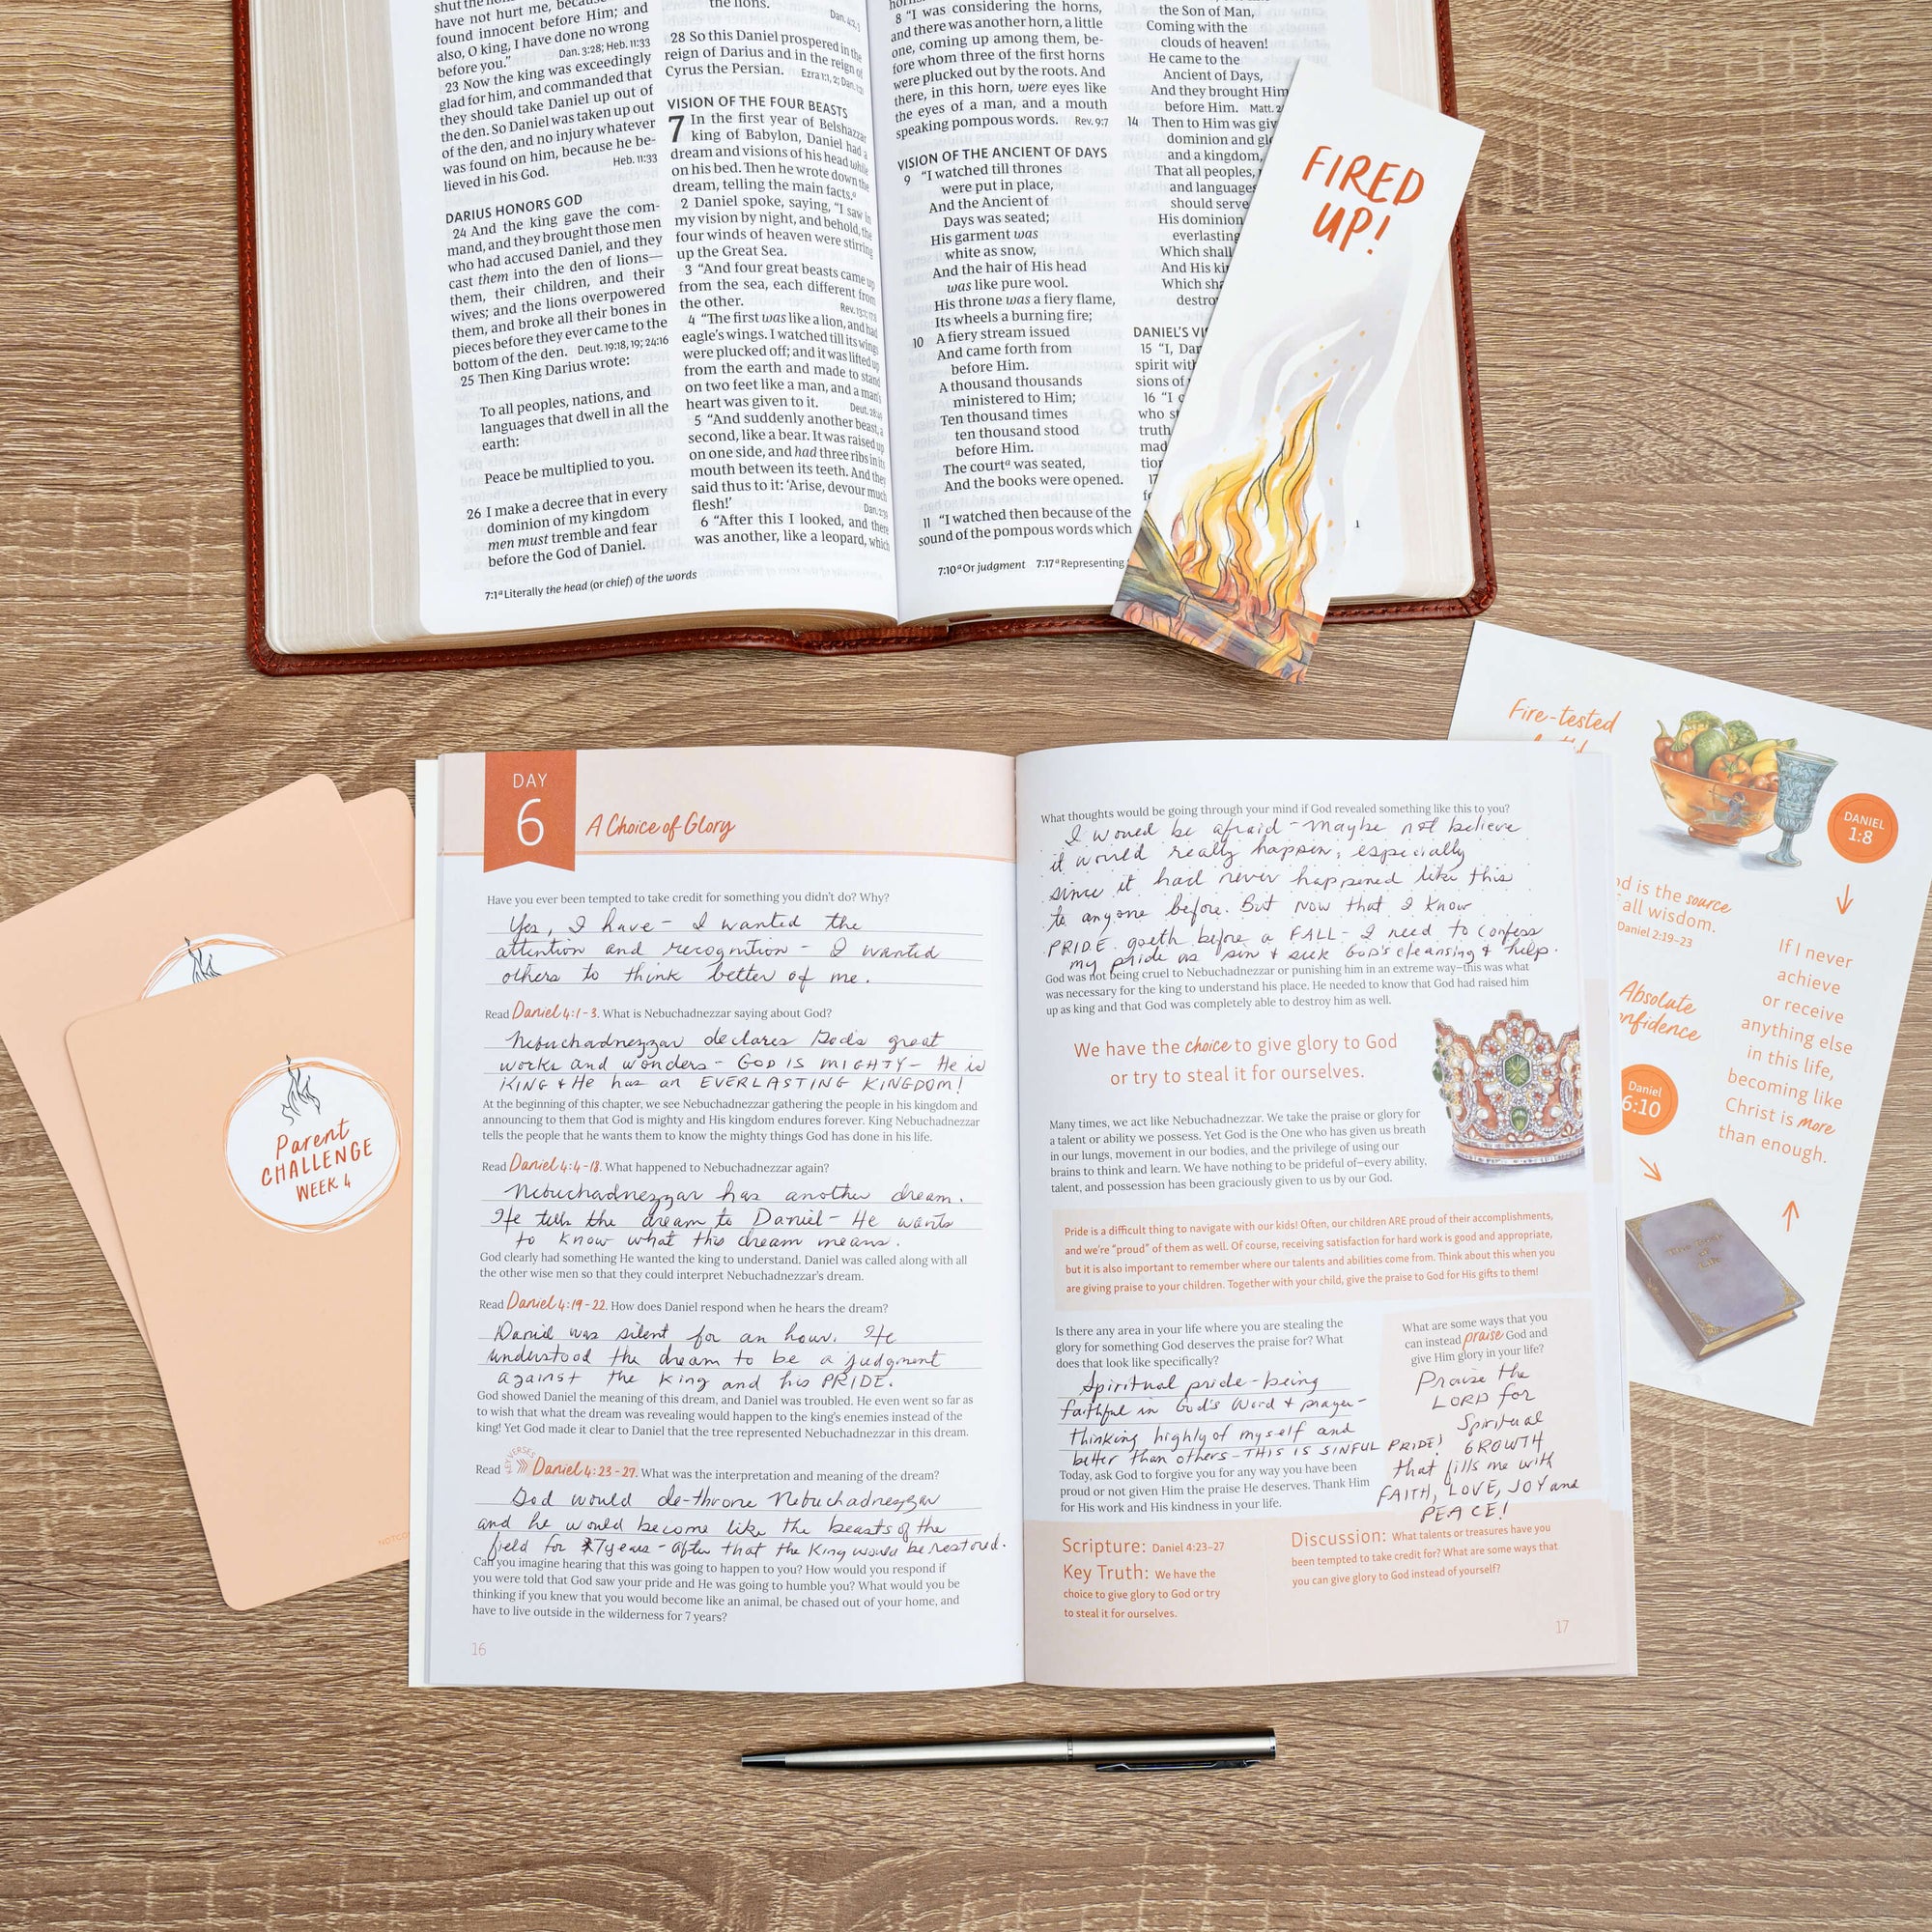 have not hurt me, because
found innocent before Him; and
also, O king, I have done no wrong
before you." Dan. 3:28; Heb. 11:33
23 Now the king was exceedingly
glad for him, and commanded that
they should take Daniel up out of
the den. So Daniel was taken up out
of the den, and no injury whatever
was found on him, because he be-
lieved in his God. Heb. 11:33
DARIUS HONORS GOD
24 And the king gave the com-
mand, and they brought those men
who had accused Daniel, and they
cast them into the den of lions—
them, their children, and their
wives; and the lions overpowered
them, and broke all their bones in
pieces before they ever came to the
bottom of the den. Deut. 19:18, 19; 24:16
25 Then King Darius wrote:
To all peoples, nations, and
languages that dwell in all the
earth:
Peace be multiplied to you.
26 I make a decree that in every
dominion of my kingdom
men must tremble and fear
before the God of Daniel.
7:1ᵃ Literally the head (or chief) of the words
the lions.
28 So this Daniel prospered in the
reign of Darius and in the reign of
Cyrus the Persian. Ezra 1:1, 2; Dan. 1:21
VISION OF THE FOUR BEASTS
7 In the first year of Belshazzar
king of Babylon, Daniel had a
dream and visions of his head while
on his bed. Then he wrote down the
dream, telling the main facts.ᵃ
2 Daniel spoke, saying, "I saw in
my vision by night, and behold, the
four winds of heaven were stirring
up the Great Sea.
3 "And four great beasts came up
from the sea, each different from
the other.
4 "The first was like a lion, and had
eagle's wings. I watched till its wings
were plucked off; and it was lifted up
from the earth and made to stand
on two feet like a man, and a man's
heart was given to it.
5 "And suddenly another beast, a
second, like a bear. It was raised up
on one side, and had three ribs in its
mouth between its teeth. And they
said thus to it: 'Arise, devour much
flesh!'
6 "After this I looked, and there
was another, like a leopard, which
8 "I was considering the horns,
and there was another horn, a little
one, coming up among them, be-
fore whom three of the first horns
were plucked out by the roots. And
there, in this horn, were eyes like
the eyes of a man, and a mouth
speaking pompous words. Rev. 9:7
VISION OF THE ANCIENT OF DAYS
9 "I watched till thrones
were put in place,
And the Ancient of
Days was seated;
His garment was
white as snow,
And the hair of His head
was like pure wool.
His throne was a fiery flame,
Its wheels a burning fire;
10 A fiery stream issued
And came forth from
before Him.
A thousand thousands
ministered to Him;
Ten thousand times
ten thousand stood
before Him.
The courtᵃ was seated,
And the books were opened.
11 "I watched then because of the
sound of the pompous words which
7:10ᵃ Or judgment 7:17ᵃ Representing
the Son of Man,
Coming with the
clouds of heaven!
He came to the
Ancient of Days,
And they brought Him
before Him. Matt. 2
14 Then to Him was giv
dominion and glo
and a kingdom,
That all peoples,
and languages
should serve
His dominion
everlasting
Which shall
And His ki
Which sha
destro
DANIEL'S VI
15 "I, Dan
spirit with
sions of
16 "I c
who s
truth
mad
tion
17
FIRED
UP!
Fire-tested
DANIEL
1:8
d is the source
all wisdom.
Daniel 2:19–23
Absolute
nfidence
Daniel
6:10
If I never
achieve
or receive
anything else
in this life,
becoming like
Christ is more
than enough.
Parent
CHALLENGE
WEEK 4
DAY
6
A Choice of Glory
Have you ever been tempted to take credit for something you didn't do? Why?
Yes, I have - I wanted the
attention and recognition - I wanted
others to think better of me.
Read Daniel 4:1-3. What is Nebuchadnezzar saying about God?
Nebuchadnezzar declares God's great
works and wonders - GOD IS MIGHTY - He is
KING & He has an EVERLASTING KINGDOM!
At the beginning of this chapter, we see Nebuchadnezzar gathering the people in his kingdom and
announcing to them that God is mighty and His kingdom endures forever. King Nebuchadnezzar
tells the people that he wants them to know the mighty things God has done in his life.
Read Daniel 4:4-18. What happened to Nebuchadnezzar again?
Nebuchadnezzar has another dream.
He tells the dream to Daniel - He wants
to know what this dream means.
God clearly had something He wanted the king to understand. Daniel was called along with all
the other wise men so that they could interpret Nebuchadnezzar's dream.
Read Daniel 4:19-22. How does Daniel respond when he hears the dream?
Daniel was silent for an hour. He
understood the dream to be a judgment
against the King and his PRIDE.
God showed Daniel the meaning of this dream, and Daniel was troubled. He even went so far as
to wish that what the dream was revealing would happen to the king's enemies instead of the
king! Yet God made it clear to Daniel that the tree represented Nebuchadnezzar in this dream.
KEY VERSES
Read Daniel 4:23-27. What was the interpretation and meaning of the dream?
God would de-throne Nebuchadnezzar
and he would become like the beasts of the
field for 7 years - after that the King would be restored.
Can you imagine hearing that this was going to happen to you? How would you respond if
you were told that God saw your pride and He was going to humble you? What would you be
thinking if you knew that you would become like an animal, be chased out of your home, and
have to live outside in the wilderness for 7 years?
16
What thoughts would be going through your mind if God revealed something like this to you?
I would be afraid - maybe not believe
it would really happen, especially
since it had never happened like this
to anyone before. But now that I know
PRIDE goeth before a FALL - I need to confess
my pride as sin & seek GOD'S cleansing & help.
God was not being cruel to Nebuchadnezzar or punishing him in an extreme way–this was what
was necessary for the king to understand his place. He needed to know that God had raised him
up as king and that God was completely able to destroy him as well.
We have the choice to give glory to God
or try to steal it for ourselves.
Many times, we act like Nebuchadnezzar. We take the praise or glory for
a talent or ability we possess. Yet God is the One who has given us breath
in our lungs, movement in our bodies, and the privilege of using our
brains to think and learn. We have nothing to be prideful of–every ability,
talent, and possession has been graciously given to us by our God.
Pride is a difficult thing to navigate with our kids! Often, our children ARE proud of their accomplishments,
and we're "proud" of them as well. Of course, receiving satisfaction for hard work is good and appropriate,
but it is also important to remember where our talents and abilities come from. Think about this when you
are giving praise to your children. Together with your child, give the praise to God for His gifts to them!
Is there any area in your life where you are stealing the
glory for something God deserves the praise for? What
does that look like specifically?
Spiritual pride - being
faithful in God's Word & prayer -
thinking highly of myself and
better than others - THIS IS SINFUL PRIDE!
Today, ask God to forgive you for any way you have been
proud or not given Him the praise He deserves. Thank Him
for His work and His kindness in your life.
What are some ways that you
can instead praise God and
give Him glory in your life?
Praise the
LORD for
Spiritual
GROWTH
that fills me with
FAITH, LOVE, JOY and
PEACE!
Scripture: Daniel 4:23–27
Key Truth: We have the
choice to give glory to God or try
to steal it for ourselves.
Discussion: What talents or treasures have you
been tempted to take credit for? What are some ways that
you can give glory to God instead of yourself?
17